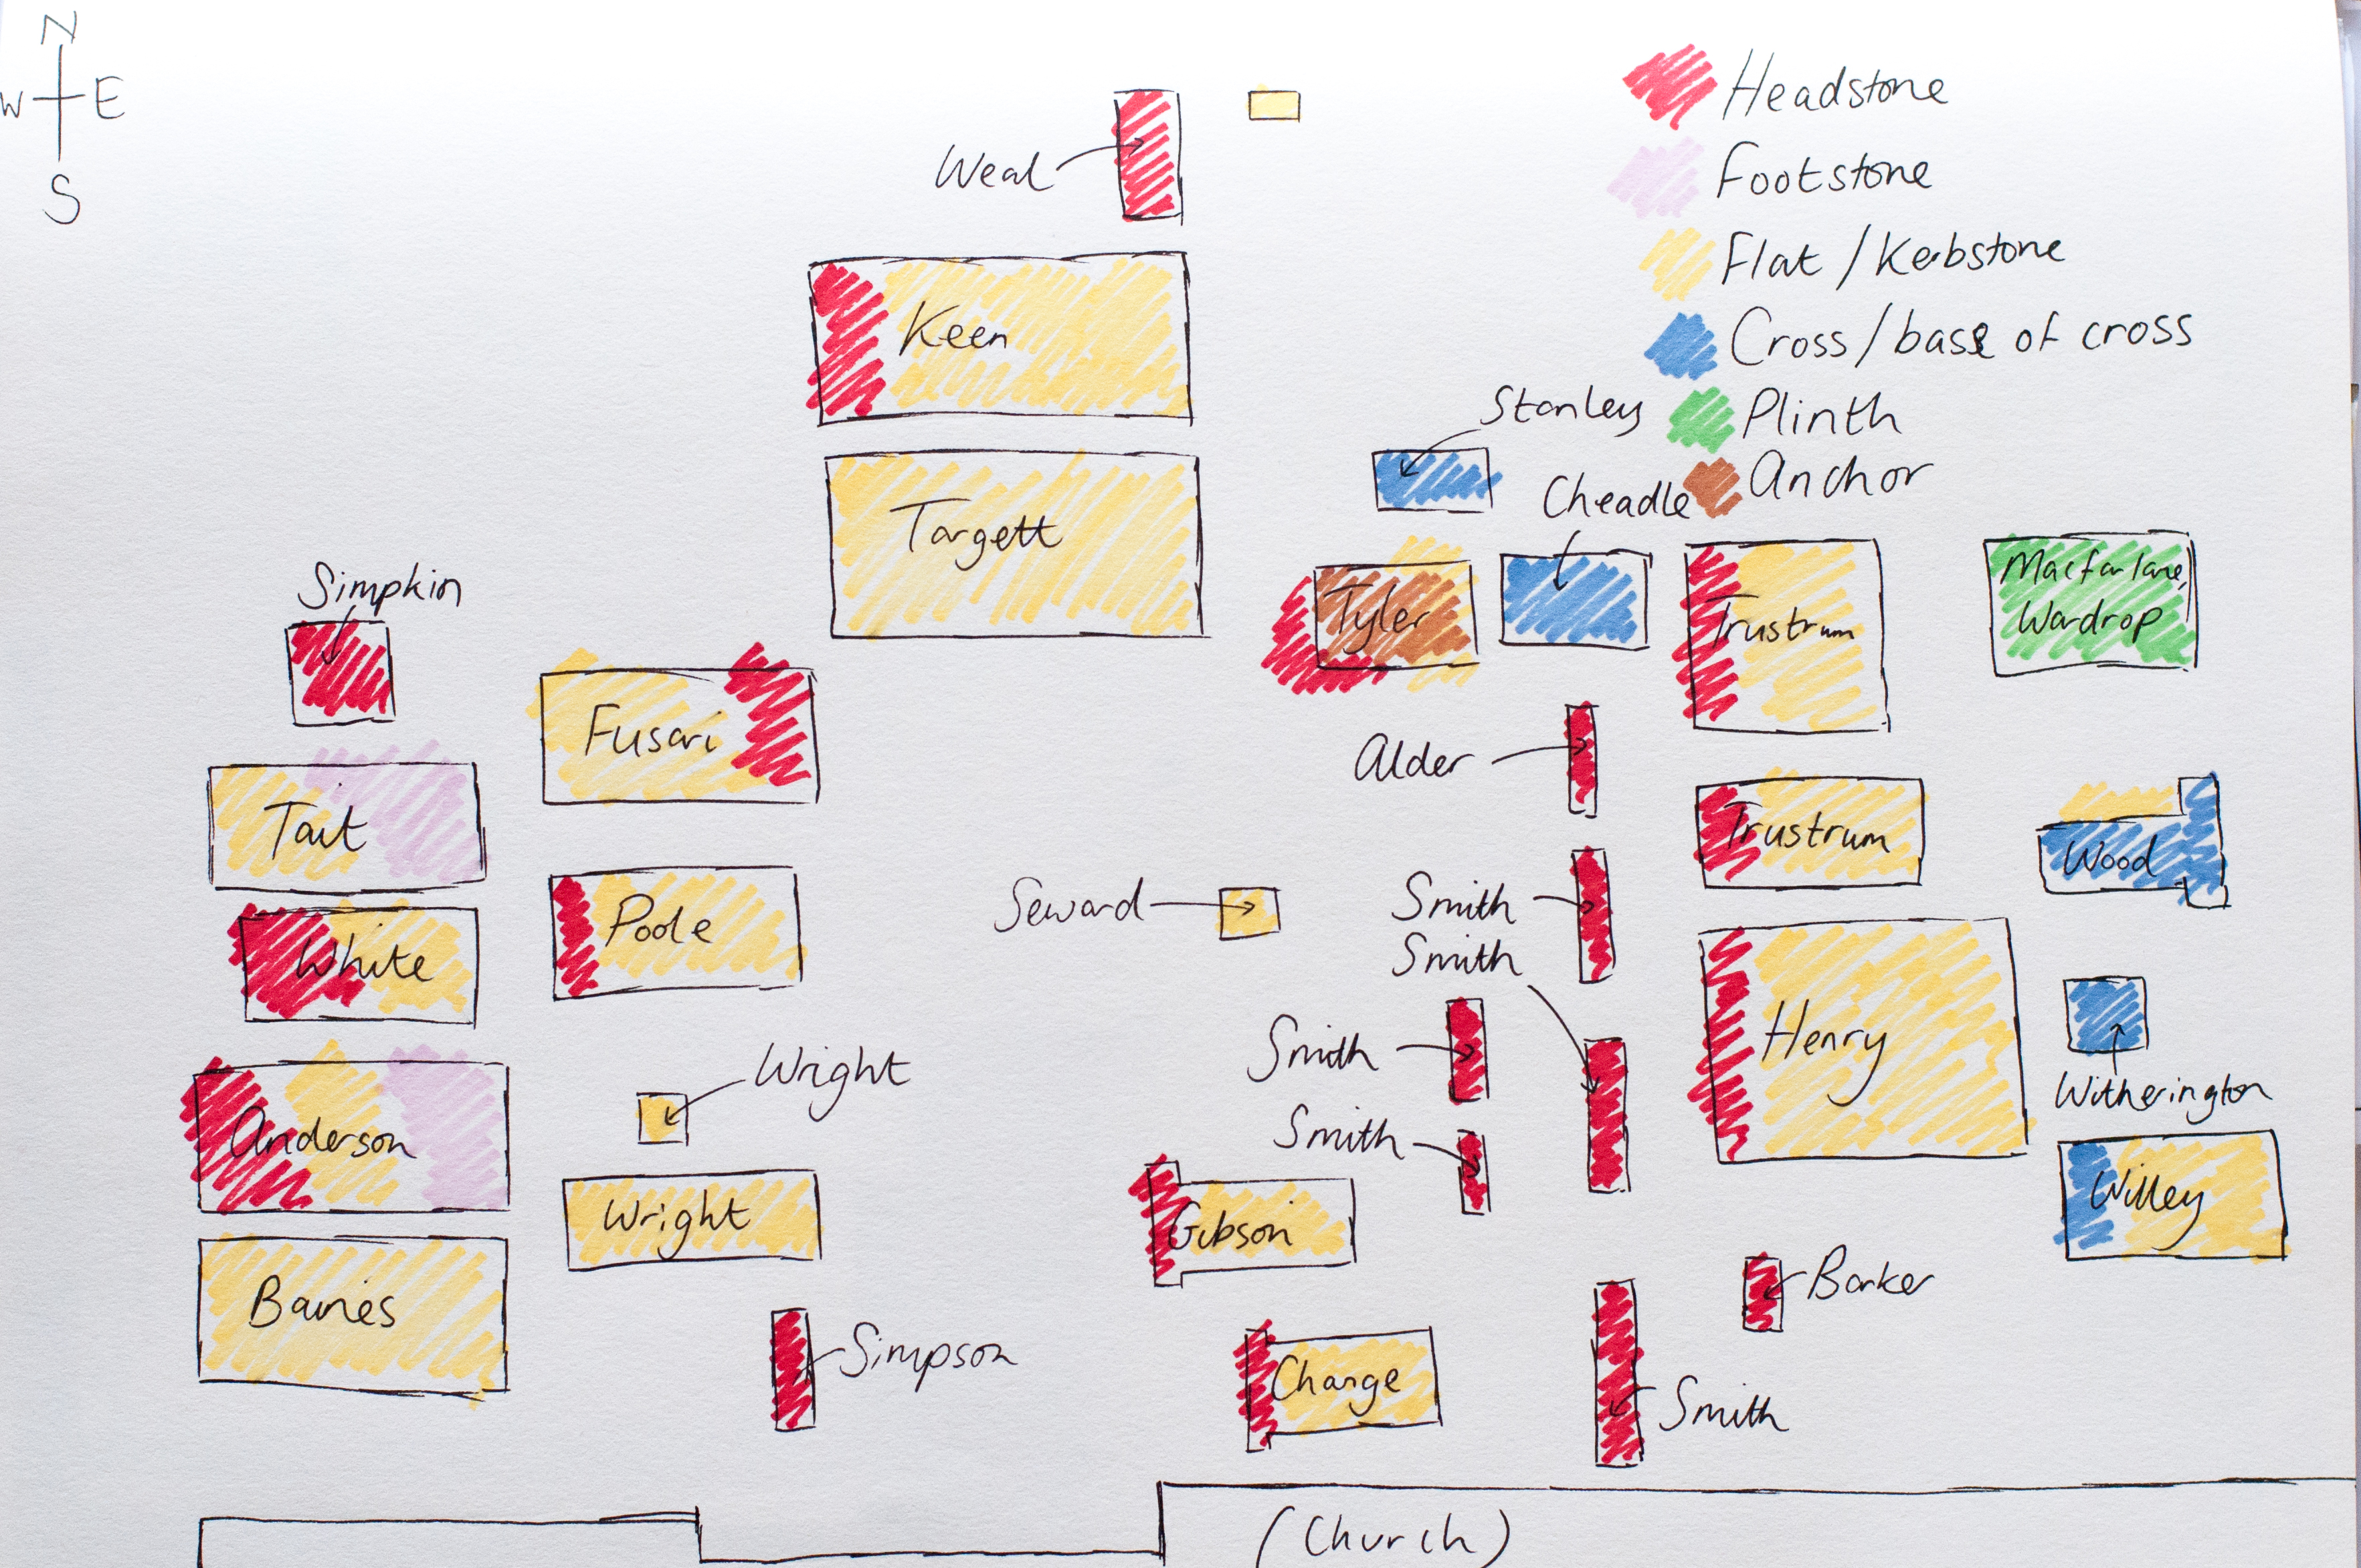 N
W E
S
Headstone
Footstone
Flat / Kerbstone
Cross / base of cross
Plinth
Anchor
Weal
Keen
Targett
Stanley
Cheadle
Tyler
Trustrum
Macfarlane,
Wardrop
Simpkin
Fusari
Tait
Alder
Trustrum
Wood
White
Poole
Seward
Smith
Smith
Henry
Smith
Wright
Witherington
Anderson
Smith
Wright
Gibson
Willey
Baines
Barker
Simpson
Change
Smith
(Church)